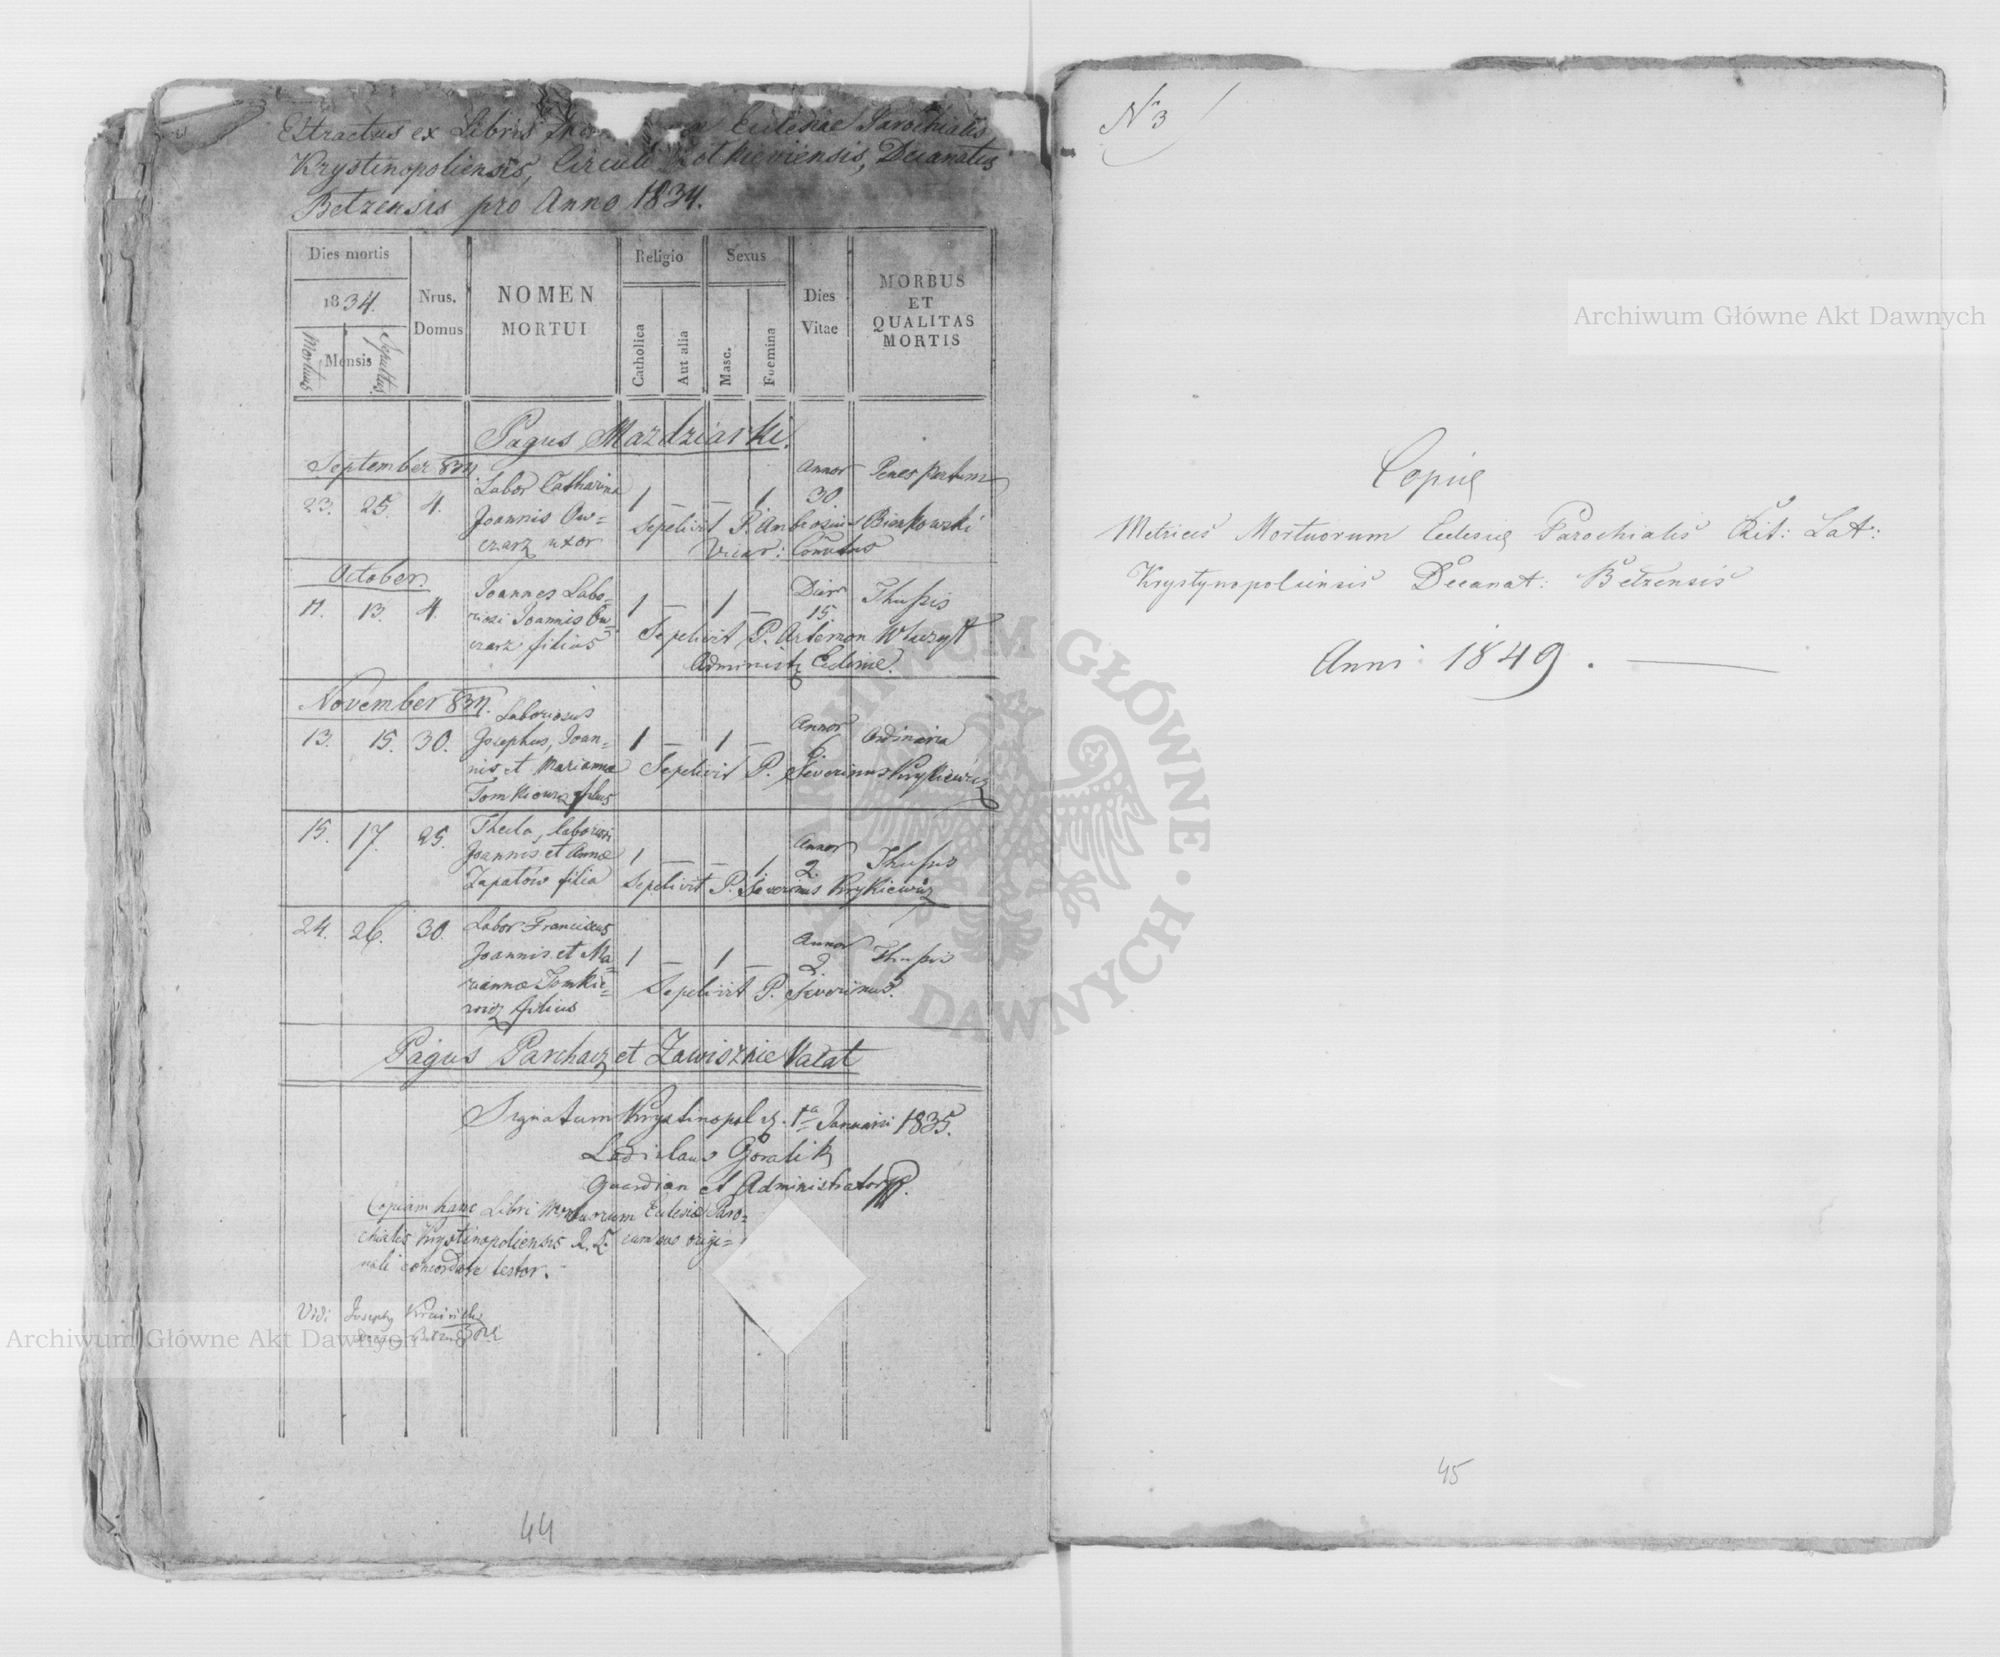 Extractus ex Libris Ecclesiae Parochialis
Krystinopoliensis, Circuli Zolkieviensis, Decanatus
Betzensis pro Anno 1834.
Dies mortis
1834.
Mensis
Mortuus
Sepultus
Nrus.
Domus
NOMEN
MORTUI
Religio
Catholica
Aut alia
Sexus
Masc.
Foemina
Dies
Vitae
MORBUS
ET
QUALITAS
MORTIS
Pagus Mazdziarki.
September 834
23. 25. 4. Labor Catharina 1 — — 1 Annor 30 Penes partum
Joannis Ow=
czarz uxor
Sepelivit P. Ambrosius Bienkowski
Vicar: Convtus
October.
11. 13. 4. Joannes Labo=
riosi Joannis Ow=
czarz filius
1 — 1 — Dier 15. Thussis
Sepelivit P. Artemon
Administr Ecclesiae.
November 834.
13. 15. 30. Laboriosus
Josephus, Joan=
nis et Marianna
Tomkiewicz filius
1 — 1 — Annor 6. Ordinaria
Sepelivit P. Severinus Krykiewicz
15. 17. 25. Thecla, laboriosi
Joannis et Annae
Zapatow filia
1 — — 1 Annor 2. Thussis
Sepelivit P. Severinus Krykiewicz
24. 26. 30. Labor Franciscus
Joannis et Ma=
riannae Tomkie=
wicz filius
1 — 1 — Annor 2. Thussis
Sepelivit P. Severinus.
Pagus Parchacz et Zawisznie Vacat
Signatum Krystinopol d. 1a Januarii 1835.
Ladislaus Goralik
Guardian et Administrator
Copiam hanc Libri Mortuorum Ecclesiae Paro=
chialis Krystinopoliensis R. L. cum suo origi=
nali concordare testor.
Vidi Joseph
44
No 3
Copia
Metrices Mortuorum Ecclesiae Parochialis Rit: Lat:
Krystynopoliensis Decanat: Belzensis
Anni 1849.
45
Archiwum Główne Akt Dawnych
Archiwum Główne Akt Dawnych
ARCHIWUM GŁÓWNE AKT DAWNYCH